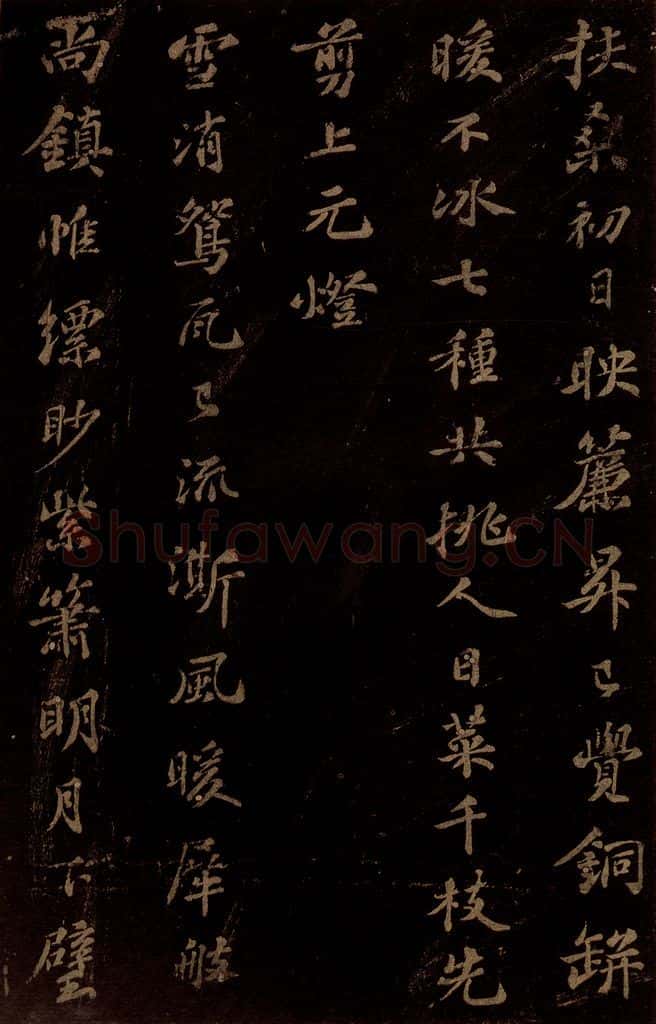 扶桑初日映簾昇已覺銅缾
暖不冰七種共挑人日菜千枝先
剪上元燈
雪消鴛瓦已流澌風暖犀
尚鎮帷縹眇紫簫明月下壁
Shufawang.CN